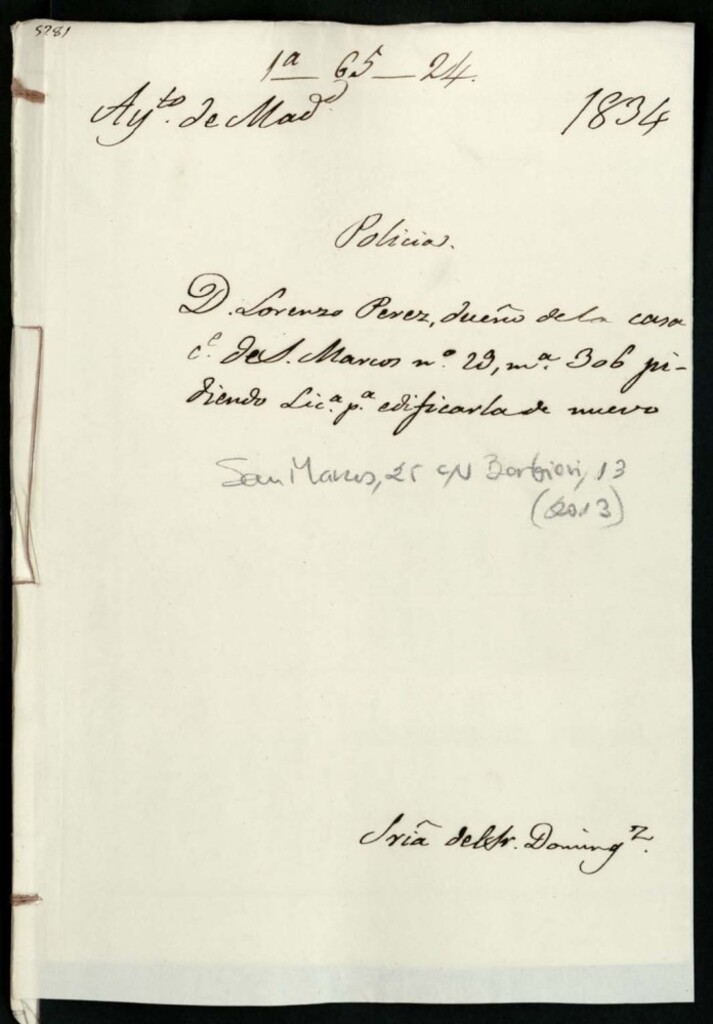 5281
1ª — 65 — 24.
Ayto. de Madd 1834
Policia.
D. Lorenzo Perez, dueño de la casa
ce. de S. Marcos nº. 23, mª. 306 pi-
diendo Lica. pª. edificarla de nuevo
San Marcos, 25 c/v Barbieri, 13
(2013)
Sria del Sr. Domingz.